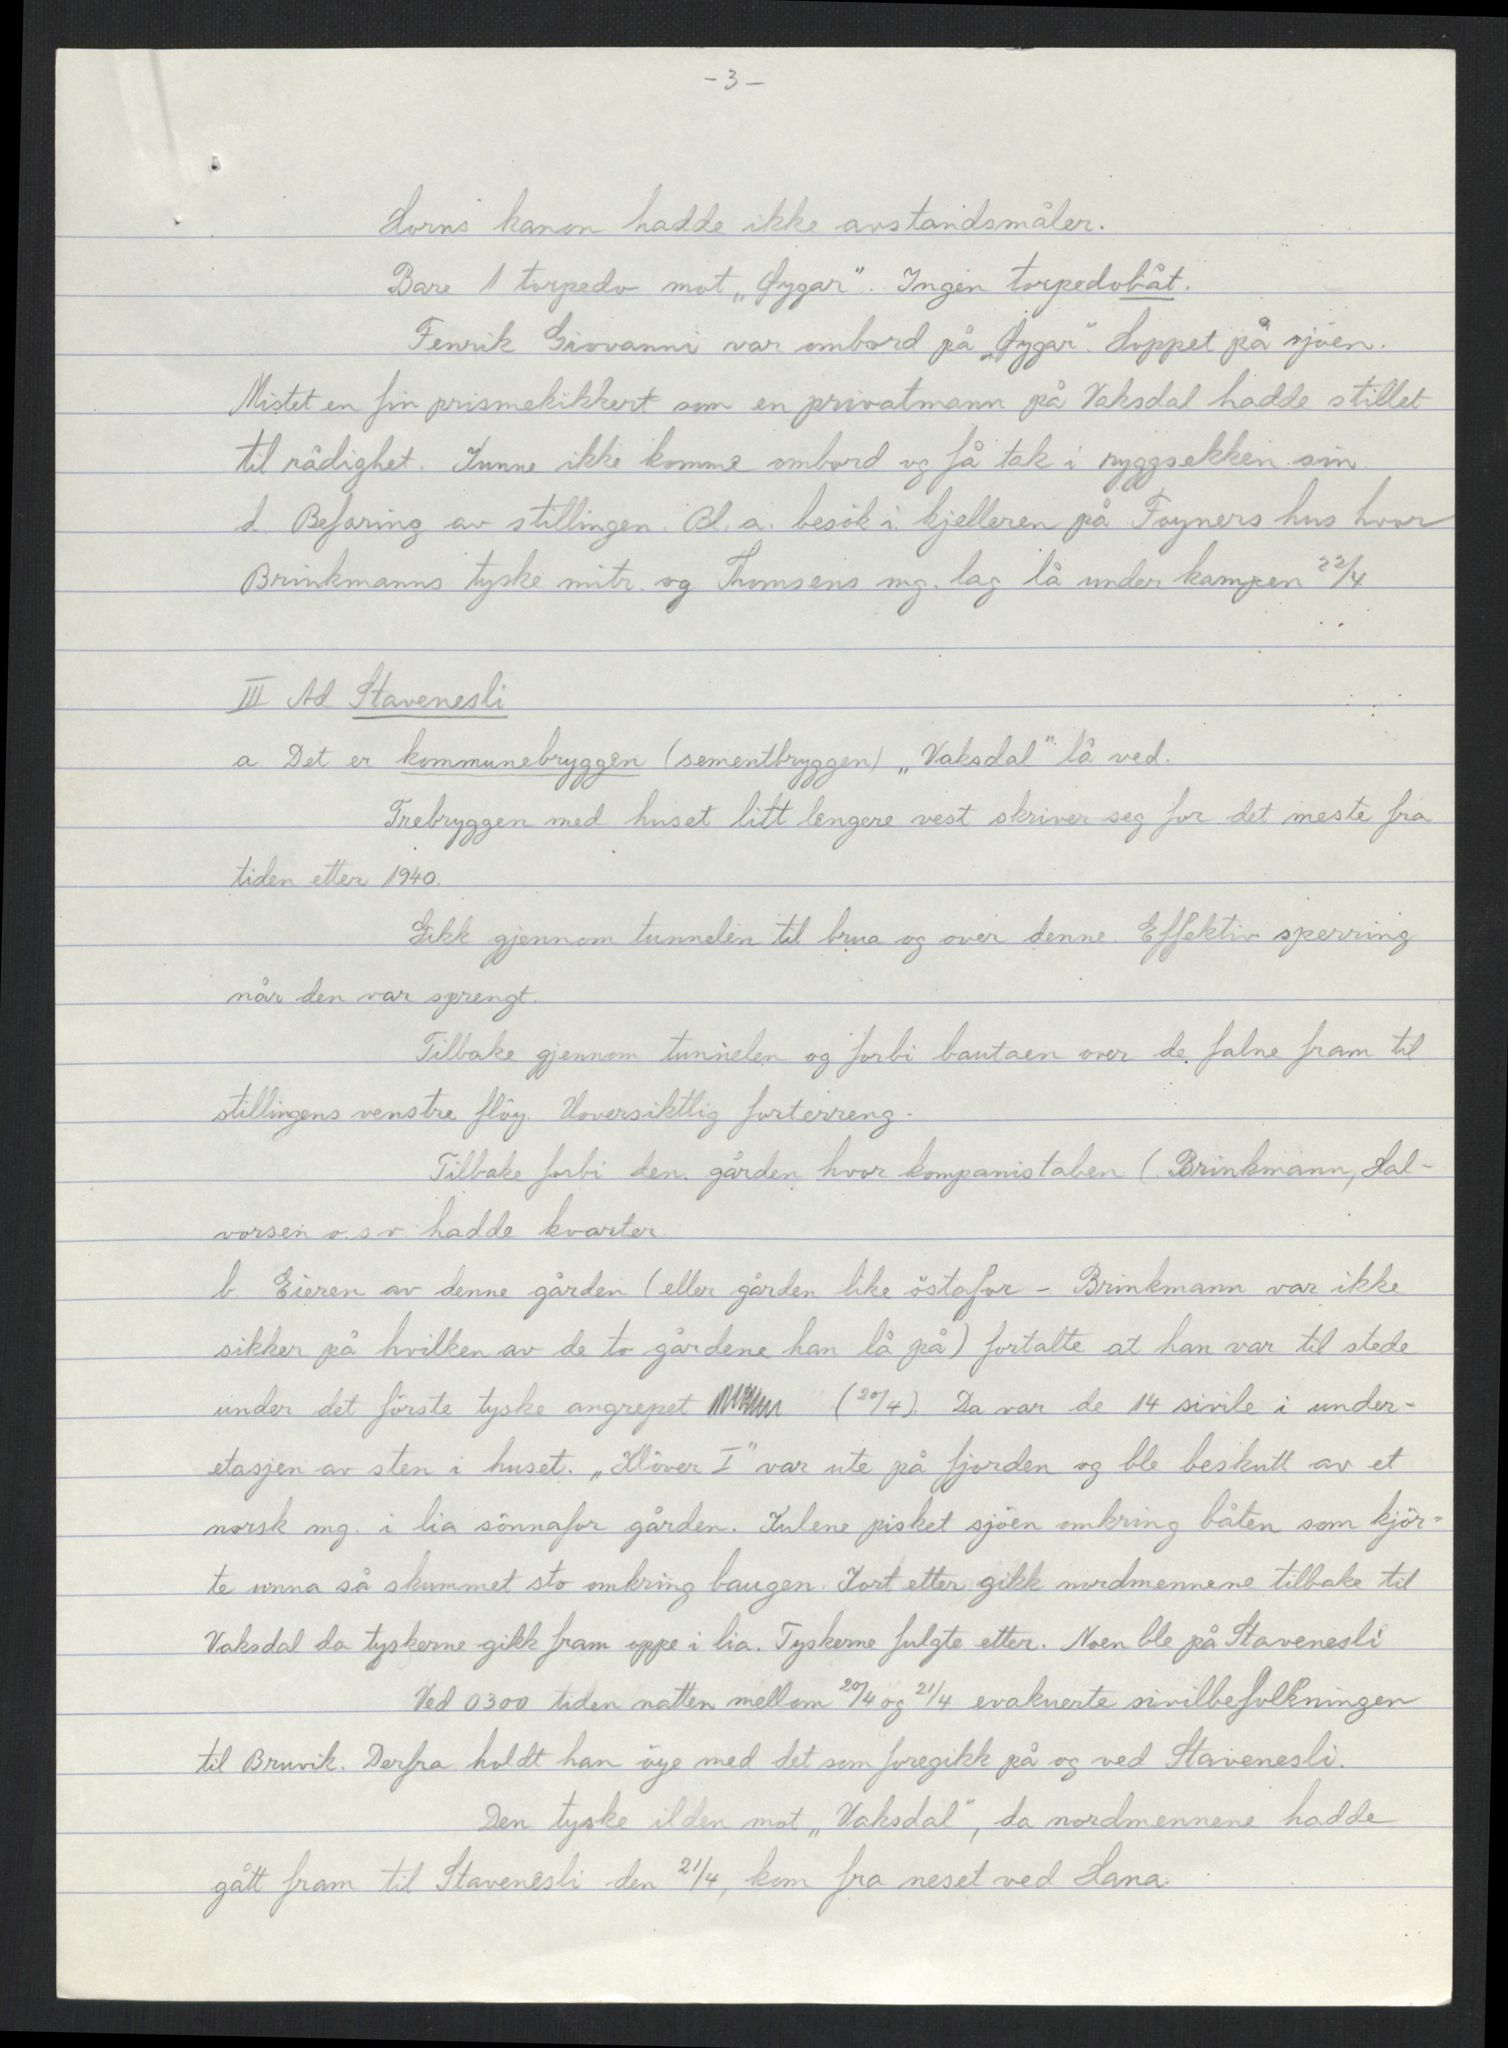 - 3 -
Horns kanon hadde ikke avstandsmåler.
Bare 1 torpedo mot „Øygar". Ingen torpedobåt.
Fenrik Giovanni var ombord på „Øygar". Hoppet på sjöen.
Mistet en fin prismekikkert som en privatmann på Vaksdal hadde stillet
til rådighet. Kunne ikke komme ombord og få tak i ryggsekken sin.
d. Befaring av stillingen. Bl. a. besök i kjelleren på Foyners hus hvor
Brinkmanns tyske mitr. og Thomsens mg. lag lå under kampen 22/4
III Ad Stavenesli
a Det er kommunebryggen (sementbryggen) „Vaksdal" lå ved.
Trebryggen med huset litt lengere vest skriver seg for det meste fra
tiden etter 1940.
Gikk gjennom tunnelen til brua og over denne. Effektiv sperring
når den var sprengt.
Tilbake gjennom tunnelen og forbi bautaen over de falne fram til
stillingens venstre flöy. Uoversiktlig forterreng.
Tilbake forbi den gården hvor kompanistaben (Brinkmann, Hal-
vorsen o.s.v. hadde kvarter.
b. Eieren av denne gården (eller gården like östafor - Brinkmann var ikke
sikker på hvilken av de to gårdene han lå på) fortalte at han var til stede
under det förste tyske angrepet (20/4). Da var de 14 sivile i under-
etasjen av sten i huset. „Klöver I" var ute på fjorden og ble beskutt av et
norsk mg. i lia sönnafor gården. Kulene pisket sjöen omkring båten som kjör-
te unna så skummet sto omkring baugen. Kort etter gikk nordmennene tilbake til
Vaksdal da tyskerne gikk fram oppe i lia. Tyskerne fulgte etter. Noen ble på Stavenesli
Ved 0300 tiden natten mellom 20/4 og 21/4 evakuerte sivilbefolkningen
til Bruvik. Derfra holdt han öye med det som foregikk på og ved Stavenesli.
Den tyske ilden mot „Vaksdal", da nordmennene hadde
gått fram til Stavenesli den 21/4, kom fra neset ved Hana.